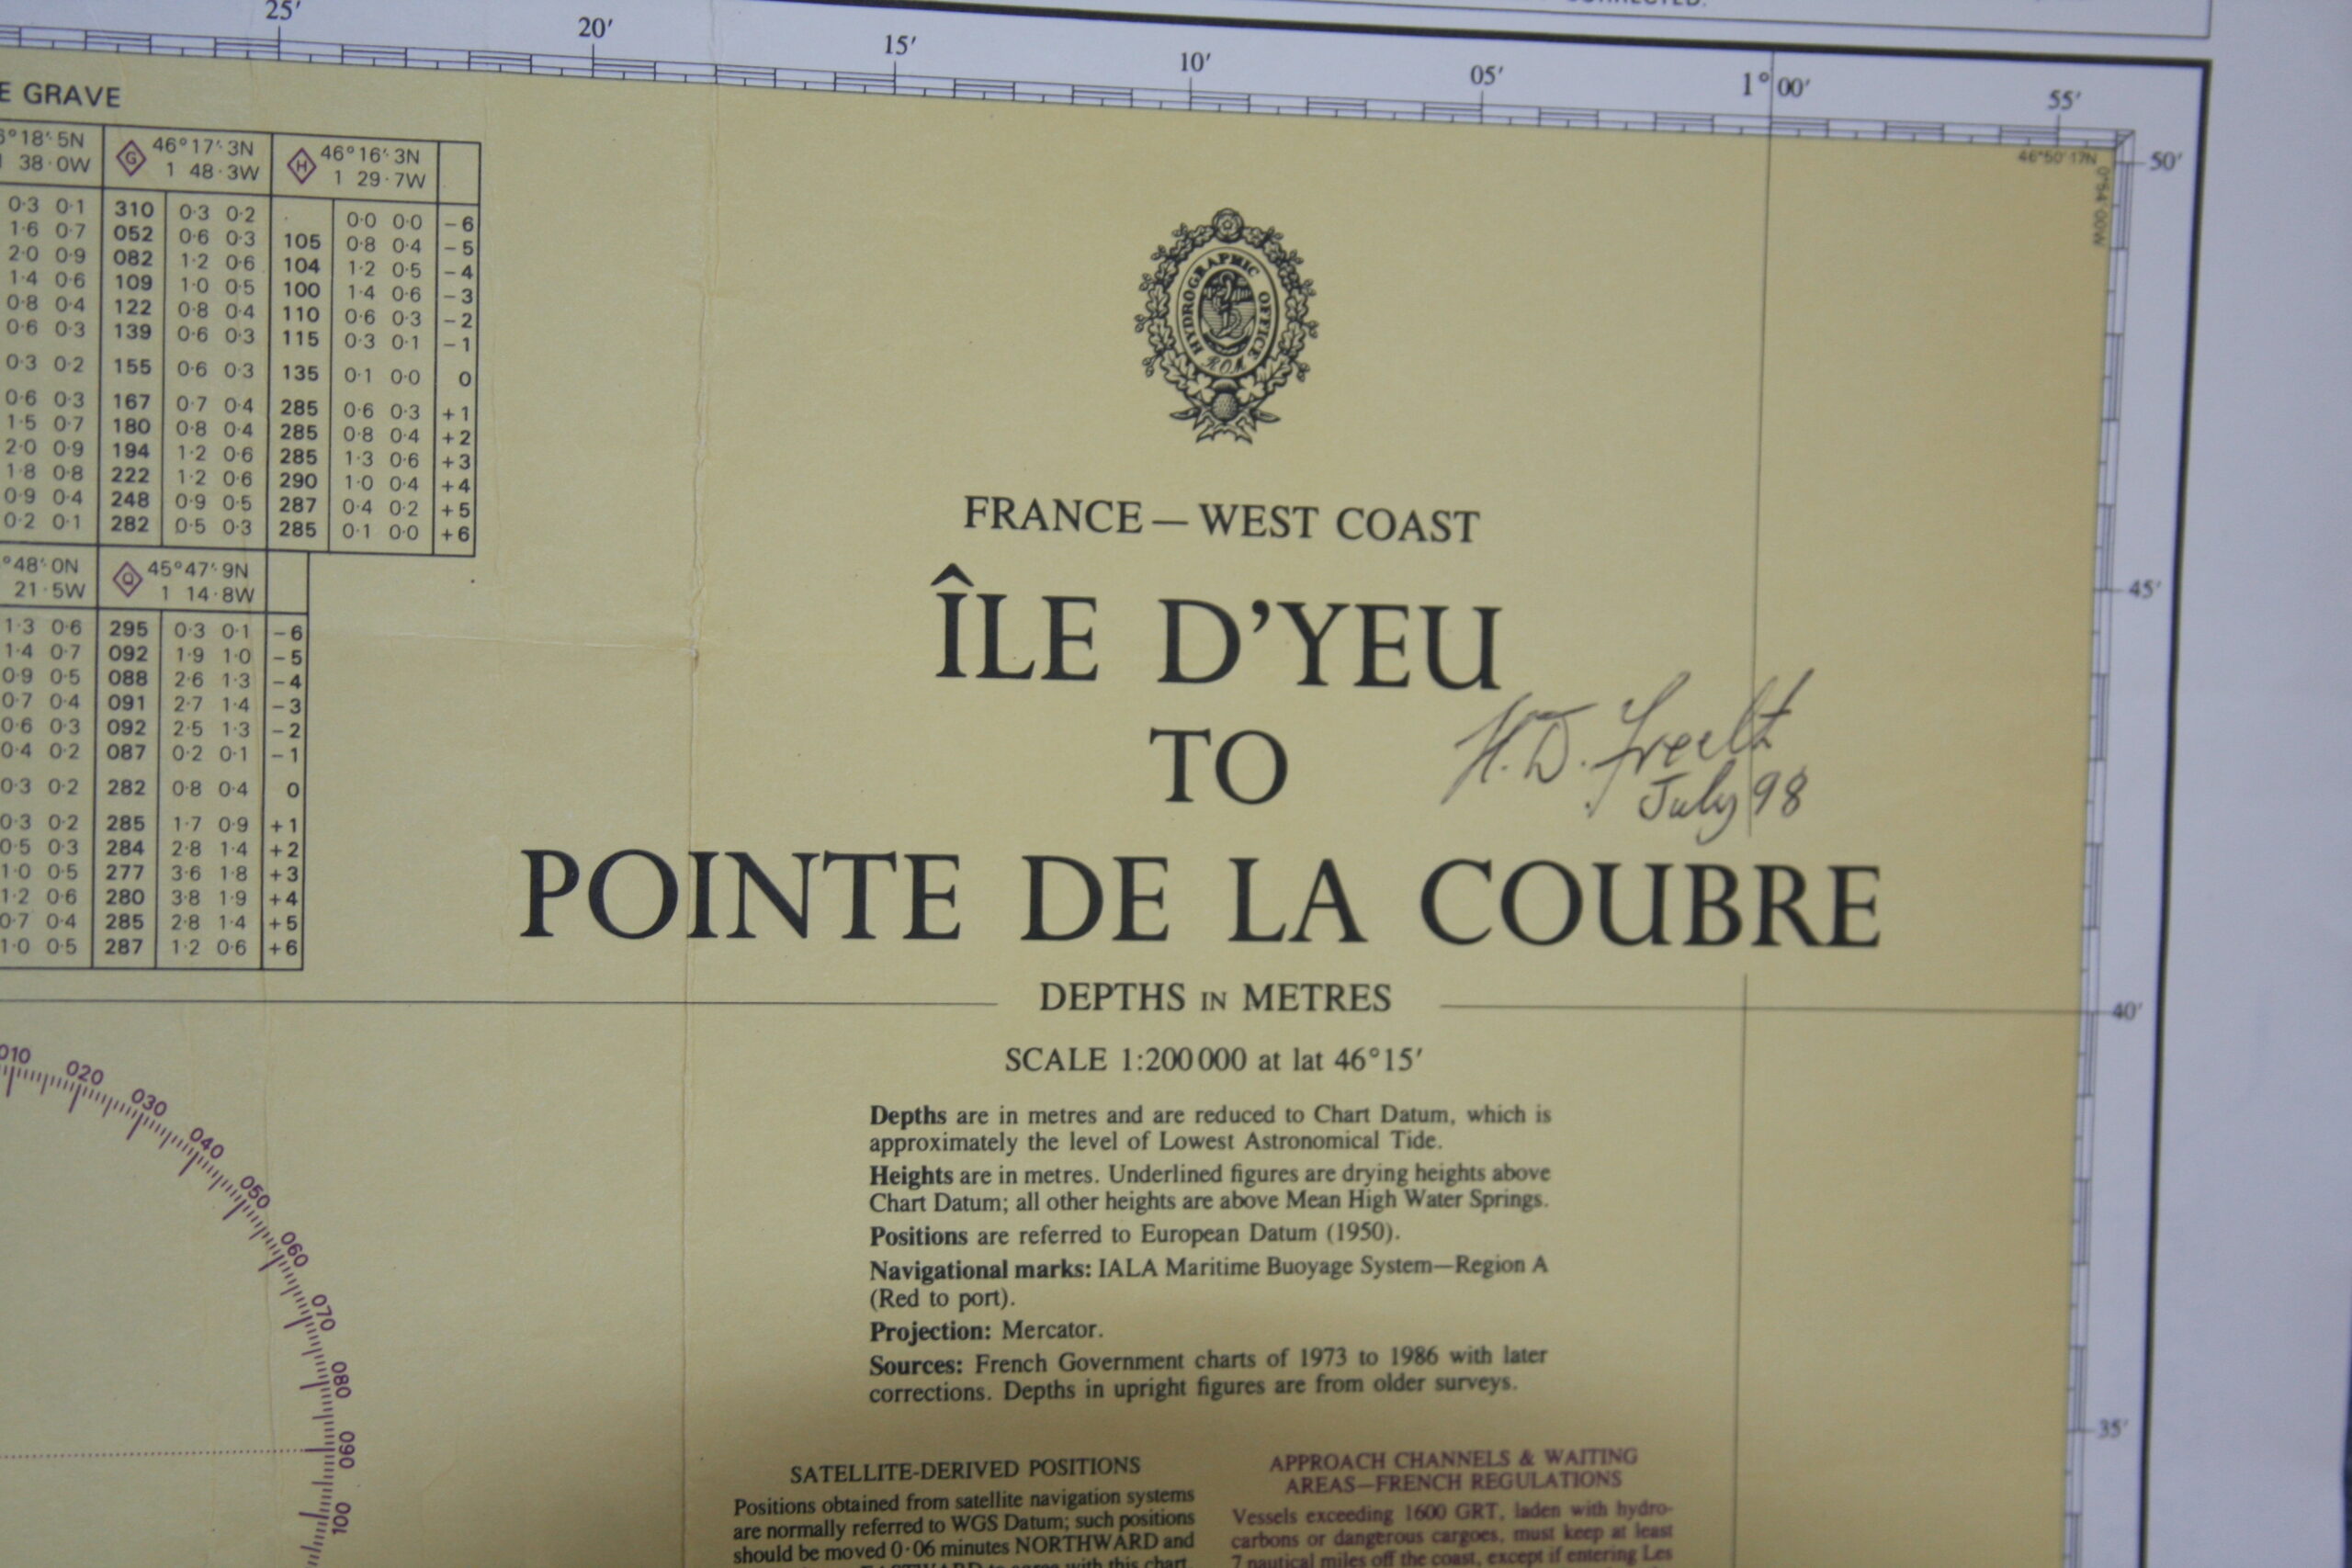 CORRECTED.
25′ 20′ 15′ 10′ 05′ 1° 00′ 55′
E GRAVE
6°18′·5N G 46°17′·3N H 46°16′·3N
1 38·0W 1 48·3W 1 29·7W
0·3 0·1 310 0·3 0·2 0·0 0·0 −6
1·6 0·7 052 0·6 0·3 105 0·8 0·4 −5
2·0 0·9 082 1·2 0·6 104 1·2 0·5 −4
1·4 0·6 109 1·0 0·5 100 1·4 0·6 −3
0·8 0·4 122 0·8 0·4 110 0·6 0·3 −2
0·6 0·3 139 0·6 0·3 115 0·3 0·1 −1
0·3 0·2 155 0·6 0·3 135 0·1 0·0 0
0·6 0·3 167 0·7 0·4 285 0·6 0·3 +1
1·5 0·7 180 0·8 0·4 285 0·8 0·4 +2
2·0 0·9 194 1·2 0·6 285 1·3 0·6 +3
1·8 0·8 222 1·2 0·6 290 1·0 0·4 +4
0·9 0·4 248 0·9 0·5 287 0·4 0·2 +5
0·2 0·1 282 0·5 0·3 285 0·1 0·0 +6
°48′·0N Q 45°47′·9N
21·5W 1 14·8W
1·3 0·6 295 0·3 0·1 −6
1·4 0·7 092 1·9 1·0 −5
0·9 0·5 088 2·6 1·3 −4
0·7 0·4 091 2·7 1·4 −3
0·6 0·3 092 2·5 1·3 −2
0·4 0·2 087 0·2 0·1 −1
0·3 0·2 282 0·8 0·4 0
0·3 0·2 285 1·7 0·9 +1
0·5 0·3 284 2·8 1·4 +2
1·0 0·5 277 3·6 1·8 +3
1·2 0·6 280 3·8 1·9 +4
0·7 0·4 285 2·8 1·4 +5
1·0 0·5 287 1·2 0·6 +6
010
020
030
040
050
060
070
080
090
100
46°50′·17N
0°54′·00W
50′
45′
40′
35′
HYDROGRAPHIC OFFICE
FRANCE — WEST COAST
ÎLE D’YEU
TO
H.D.
July 98
POINTE DE LA COUBRE
DEPTHS IN METRES
SCALE 1:200 000 at lat 46°15′
Depths are in metres and are reduced to Chart Datum, which is
approximately the level of Lowest Astronomical Tide.
Heights are in metres. Underlined figures are drying heights above
Chart Datum; all other heights are above Mean High Water Springs.
Positions are referred to European Datum (1950).
Navigational marks: IALA Maritime Buoyage System—Region A
(Red to port).
Projection: Mercator.
Sources: French Government charts of 1973 to 1986 with later
corrections. Depths in upright figures are from older surveys.
SATELLITE-DERIVED POSITIONS
Positions obtained from satellite navigation systems
are normally referred to WGS Datum; such positions
should be moved 0·06 minutes NORTHWARD and
EASTWARD to agree with this chart.
APPROACH CHANNELS & WAITING
AREAS—FRENCH REGULATIONS
Vessels exceeding 1600 GRT, laden with hydro-
carbons or dangerous cargoes, must keep at least
7 nautical miles off the coast, except if entering Les